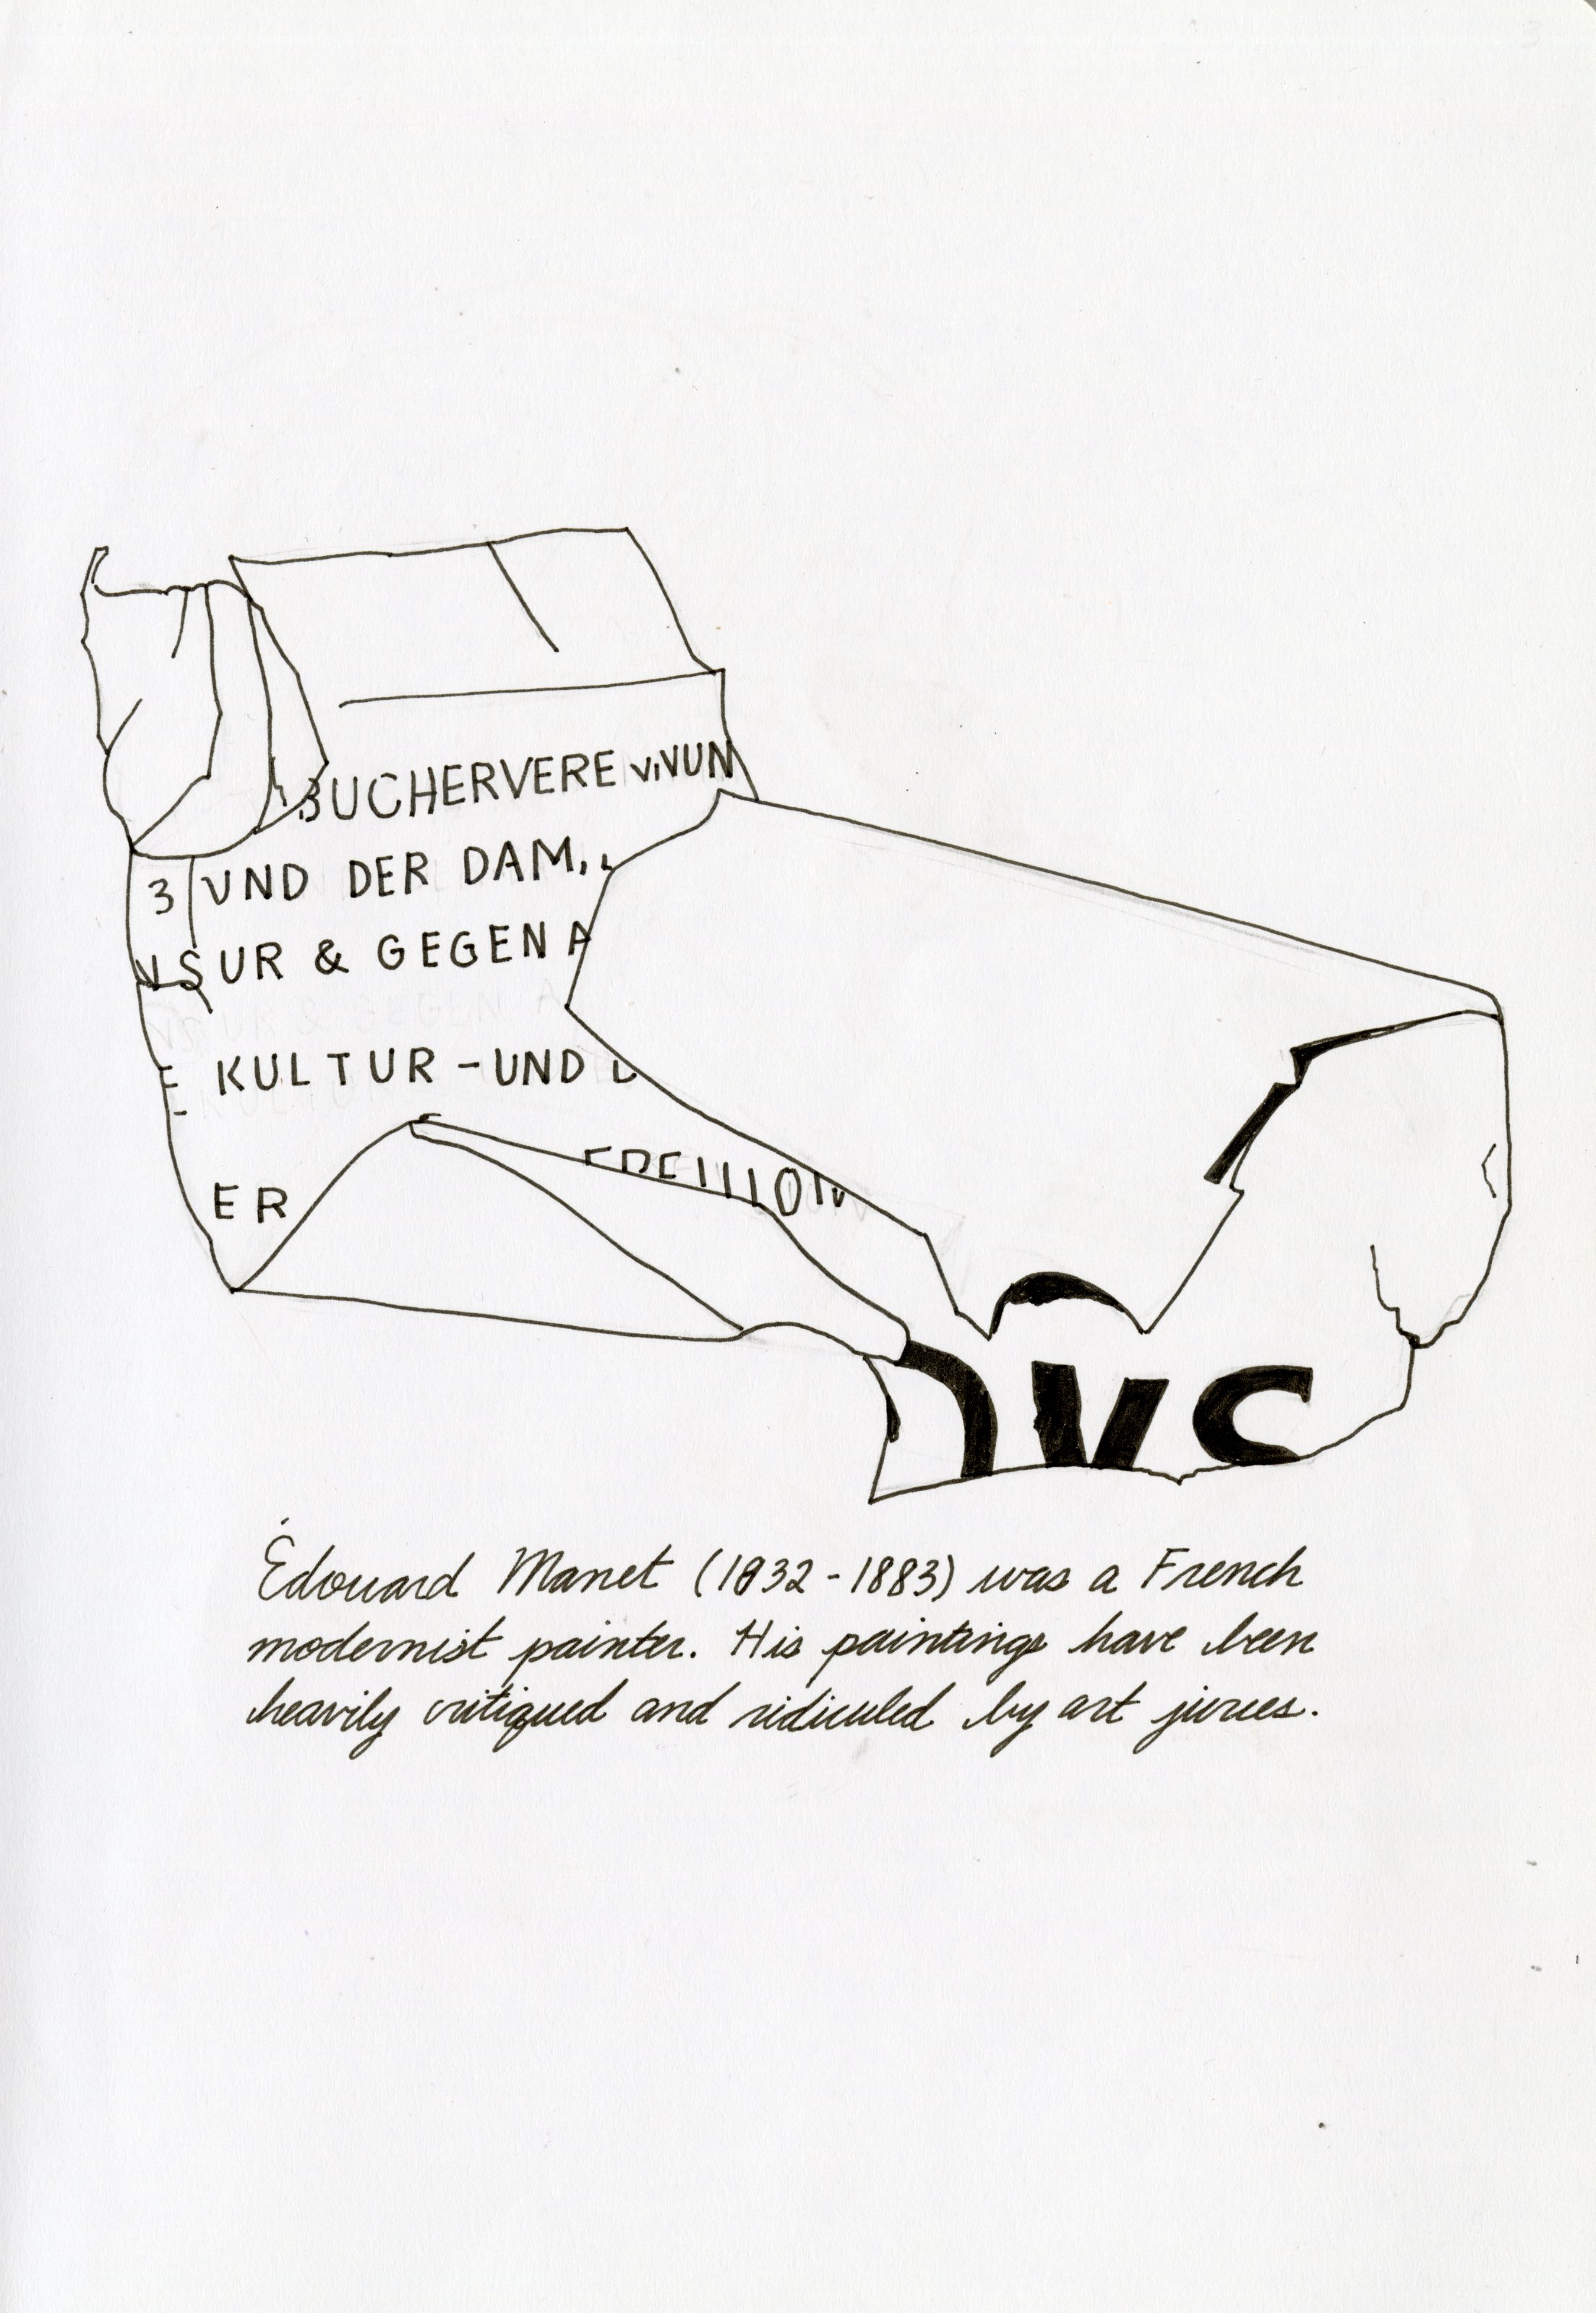 BUCHERVERE
3 UND DER DAM
NSUR & GEGEN A
KULTUR-UND
ER
Édouard Manet (1832-1883) was a French
modernist painter. His paintings have been
heavily critiqued and ridiculed by art juries.